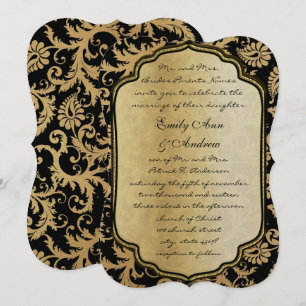 Mr. and Mrs.
Brides Parents Names
invite you to celebrate the
marriage of their daughter
Emily Ann
& Andrew
son of Mr. and Mrs.
Patrick G. Anderson
saturday the fifth of november
two thousand and sixteen
three o'clock in the afternoon
church of Christ
5098 street
city, state 45098
reception to follow